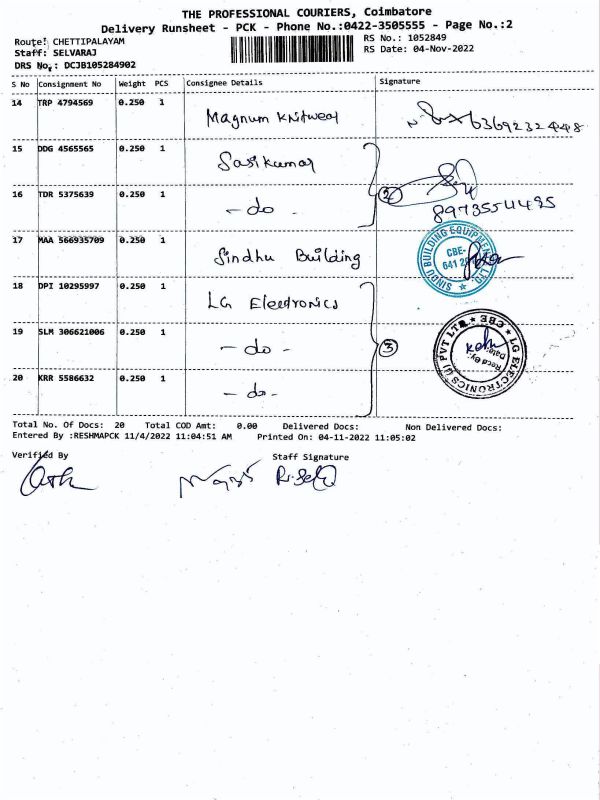 THE PROFESSIONAL COURIERS, Coimbatore
Delivery Runsheet - PCK - Phone No.:0422-3505555 - Page No.:2
Route: CHETTIPALAYAM
RS No.: 1052849
Staff: SELVARAJ
RS Date: 04-Nov-2022
DRS No.: DCJB105284902
S No Consignment No Weight PCS Consignee Details Signature
14 TRP 4794569 0.250 1 Magnum Knitwear 6369232448
15 DDG 4565565 0.250 1 Sasikumar
16 TDR 5375639 0.250 1 - do - 2 8973554495
17 MAA 566935709 0.250 1 Sindhu Building
SINDU BUILDING EQUIPMENT LTD.
CBE-
18 DPI 10295997 0.250 1 LG Electronics
19 SLM 306621006 0.250 1 - do - 3
LG ELECTRONICS (I) PVT LTD. CBE
Recd By:
Date:
20 KRR 5586632 0.250 1 - do -
Total No. Of Docs: 20 Total COD Amt: 0.00 Delivered Docs: Non Delivered Docs:
Entered By :RESHMAPCK 11/4/2022 11:04:51 AM Printed On: 04-11-2022 11:05:02
Verified By Staff Signature